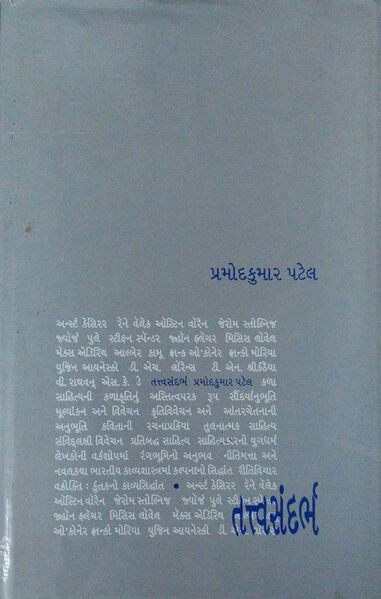 પ્રમોદકુમાર પટેલ
અર્ન્સ્ટ કેસિરર રેને વેલેક ઑસ્ટિન વૉરૅન જેરોમ સ્તોલ્નિજ
જ્યોર્જ પુલે સ્ટીફન સ્પેન્ડર જ્હૉન ફ્લેચર મિસિસ લૉવેલ
મેક્સ એડિરિથ આલ્બેર કામૂ ફ્રાન્ક ઓ'કોનેર ફ્રાન્કો મોરિયા
યુજિન આયનેસ્કો ડી. એચ. લૉરેન્સ ટી. એન. શ્રીકંઠૈયા
વી. રાઘવન્ એસ. કે. ડે તત્ત્વસંદર્ભ પ્રમોદકુમાર પટેલ કળા
સાહિત્યની કળાકૃતિનું અસ્તિત્વપરક રૂપ સૌંદર્યાનુભૂતિ
મૂલ્યાંકન અને વિવેચન કૃતિવિવેચન અને આંતરચેતનાની
અનુભૂતિ કવિતાની રચનાપ્રક્રિયા તુલનાત્મક સાહિત્ય
સંવિદ્લક્ષી વિવેચન પ્રતિબદ્ધ સાહિત્ય સાહિત્યકારનો યુગધર્મ
લેખકોની વર્કશોપમાં રંગભૂમિનો અનુભવ નીતિમત્તા અને
નવલકથા ભારતીય કાવ્યશાસ્ત્રમાં કલ્પનાનો સિદ્ધાંત રીતિવિચાર
વક્રોક્તિ : કુંતકનો કાવ્યસિદ્ધાંત • અર્ન્સ્ટ કેસિરર રેને વેલેક
ઑસ્ટિન વૉરૅન જેરોમ સ્તોલ્નિજ જ્યોર્જ પુલે
જ્હૉન ફ્લેચર મિસિસ લૉવેલ મેક્સ એડિરિથ
ઓ'કોનેર ફ્રાન્કો મોરિયા યુજિન આયનેસ્કો ડી.
તત્ત્વસંદર્ભ